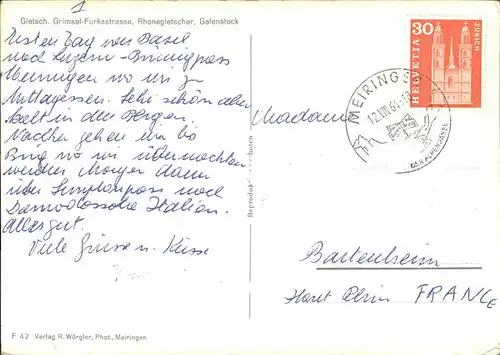 1
Gletsch. Grimsel-Furkastrasse, Rhonegletscher, Galenstock
Ersten Tag von Basel
nach Luzern - Brünigpass
Meiringen wo wir zu
Mittagessen. Sehr schön aber
kalt in den Bergen.
Nachher gehen wir bis
Brig wo wir übernachten
werden Morgen dann
über Simplonpass nach
Domodossola Italien.
Alles gut.
Viele Grüsse u. Küsse
F 42 Verlag R. Würgler, Phot., Meiringen
30
HELVETIA
ZÜRICH
MEIRINGEN
12.VIII.69
DER ALPENPÄSSE
Madame
Bartenheim
Haut Rhin FRANCE